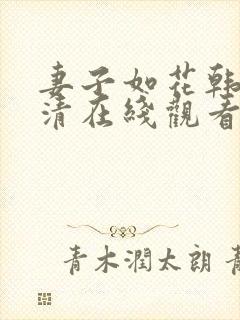 妻子如花韩
清在綫觀看
青木潤太朗